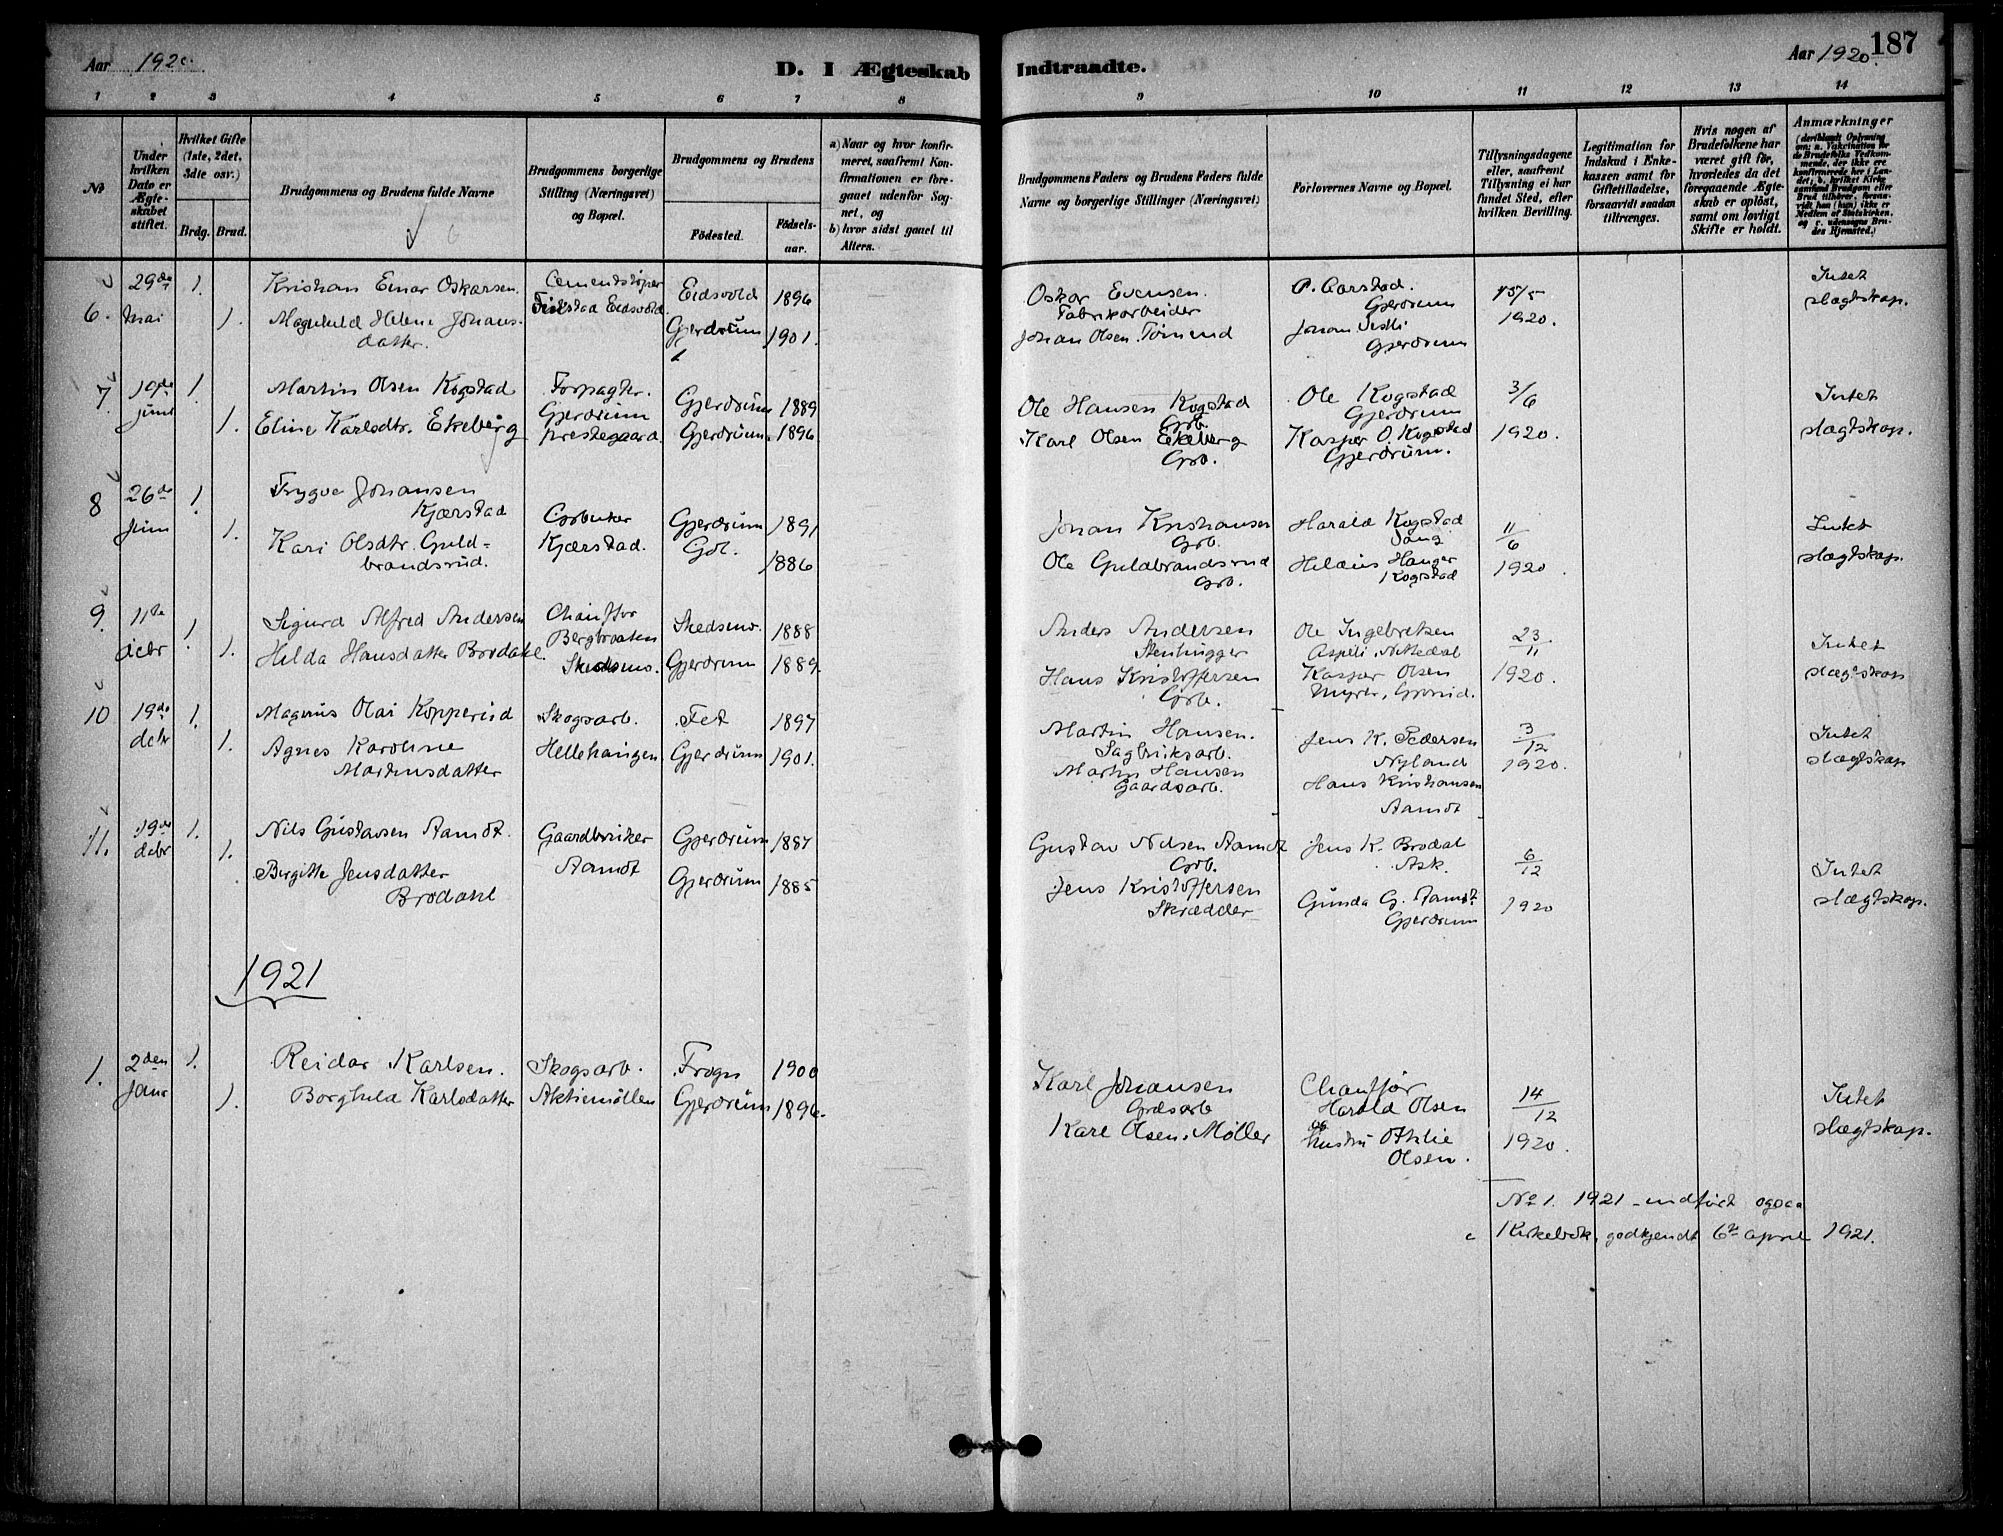 Aar 1920.
D. I Ægteskab Indtraadte.
Aar 1920.
187
1 2 3 4 5 6 7 8 9 10 11 12 13 14
№
Under hvilken Dato er Ægteskabet stiftet.
Hvilket Gifte (1ste, 2det, 3die osv.)
Brdg. Brud.
Brudgommens og Brudens fulde Navne
Brudgommens borgerlige Stilling (Næringsvei) og Bopæl.
Brudgommens og Brudens
Födested.
Födselsaar.
a) Naar og hvor konfirmeret, saafremt Konfirmationen er foregaaet udenfor Sognet, og
b) hvor sidst gaaet til Alters.
Brudgommens Faders og Brudens Faders fulde Navne og borgerlige Stillinger (Næringsvei)
Forlovernes Navne og Bopæl.
Tillysningsdagene eller, saafremt Tillysning ei har fundet Sted, efter hvilken Bevilling.
Legitimation for Indskud i Enkekassen samt for Giftetilladelse, forsaavidt saadan tiltrænges.
Hvis nogen af Brudefolkene har været gift før, hvorledes da det foregaaende Ægteskab er oplöst, samt om lovligt Skifte er holdt.
Anmærkninger
(deriblandt Oplysning om: a. Vaccination for de Brudefolks Vedkommende, der ikke ere konfirmerede her i Landet, b. hvilket Kirkesamfund Brudgom eller Brud tilhörer, forsaavidt han (hun) ikke er Medlem af Statskirken, og c. udensogns Brudes Hjemsted.)
6. 29de mai 1. 1.
Kristian Einar Oskarsen.
Magnhild Helene Johansdatter.
Cementstøper
Eidsvold.
Eidsvold 1896
Gjerdrum 1901.
Oskar Evensen.
Fabrikarbeider
Johan Olsen Tømmd
P. Aarstad.
Gjerdrum
Johan Vestli
Gjerdrum
15/5
1920.
Intet
slægtskap.
7. 19de juni 1. 1.
Martin Olsen Kogstad
Eline Karlsdtr. Ekeberg
Forpagter.
Gjerdrum
prestegaard.
Gjerdrum 1889
Gjerdrum. 1896
Ole Hansen Kogstad
Grb.
Karl Olsen Ekeberg
Grb.
Ole Kogstad
Gjerdrum
Kasper O. Kogstad
Gjerdrum.
3/6
1920.
Intet
slægtskap.
8 26de Juni 1. 1.
Trygve Johansen
Kjærstad
Kari Olsdtr. Guldbrandsrud.
Grbruker
Kjærstad.
Gjerdrum 1891
Gol. 1886
Johan Kristiansen
Grb.
Ole Guldbrandsrud
Grb.
Harald Kogstad
Hilaus Hanger
Kogstad
11/6
1920.
Intet
slægtskap.
9. 11te decbr 1. 1.
Sigurd Alfred Andersen
Hilda Hansdatter Brodahl.
Chauffør
Bergbraaten
Skedsmo.
Skedsmo. 1888
Gjerdrum 1889.
Anders Andersen
Stenhugger
Hans Kristoffersen
Grb.
Ole Ingebretsen
Aspeli, Nittedal
Kasper Olsen
23/11
1920.
Intet
slægtskap
10 19de dcbr 1. 1.
Magnus Olai Kopperud
Agnes Karoline
Martinsdatter
Skogsarb.
Hellehaugen
Fet 1897
Gjerdrum 1901.
Martin Hansen.
Sagbruksarb.
Martin Hansen
Gaardsarb.
Jens K. Pedersen
Nyland
Hans Kristiansen
Aamot
3/12
1920.
Intet
slægtskap
11. 19de dcbr 1. 1.
Nils Gustavsen Aamot.
Birgitte Jensdatter
Brodahl
Gaardbruker
Aamot
Gjerdrum 1887
Gjerdrum 1885
Gustav Nilsen Aamot
Grb.
Jens Kristoffersen
Skrædder
Jens K. Brodal
Ask.
Gunda G. Aamot
Gjerdrum
6/12
1920
Intet
slægtskap.
1921
1. 2den Janr 1. 1.
Reidar Karlsen.
Borghild Karlsdatter
Skogsarb.
Aktiemøllen
Frogn 1900
Gjerdrum 1896.
Karl Johansen
Grdsarb
Karl Olsen, Møller
Chauffør
Harald Olsen
og
hustru Othilie
Olsen.
14/12
1920.
Intet
slægtskap.
No 1. 1921 indført ogsaa
Kirkebok, godkjendt 6te april 1921.